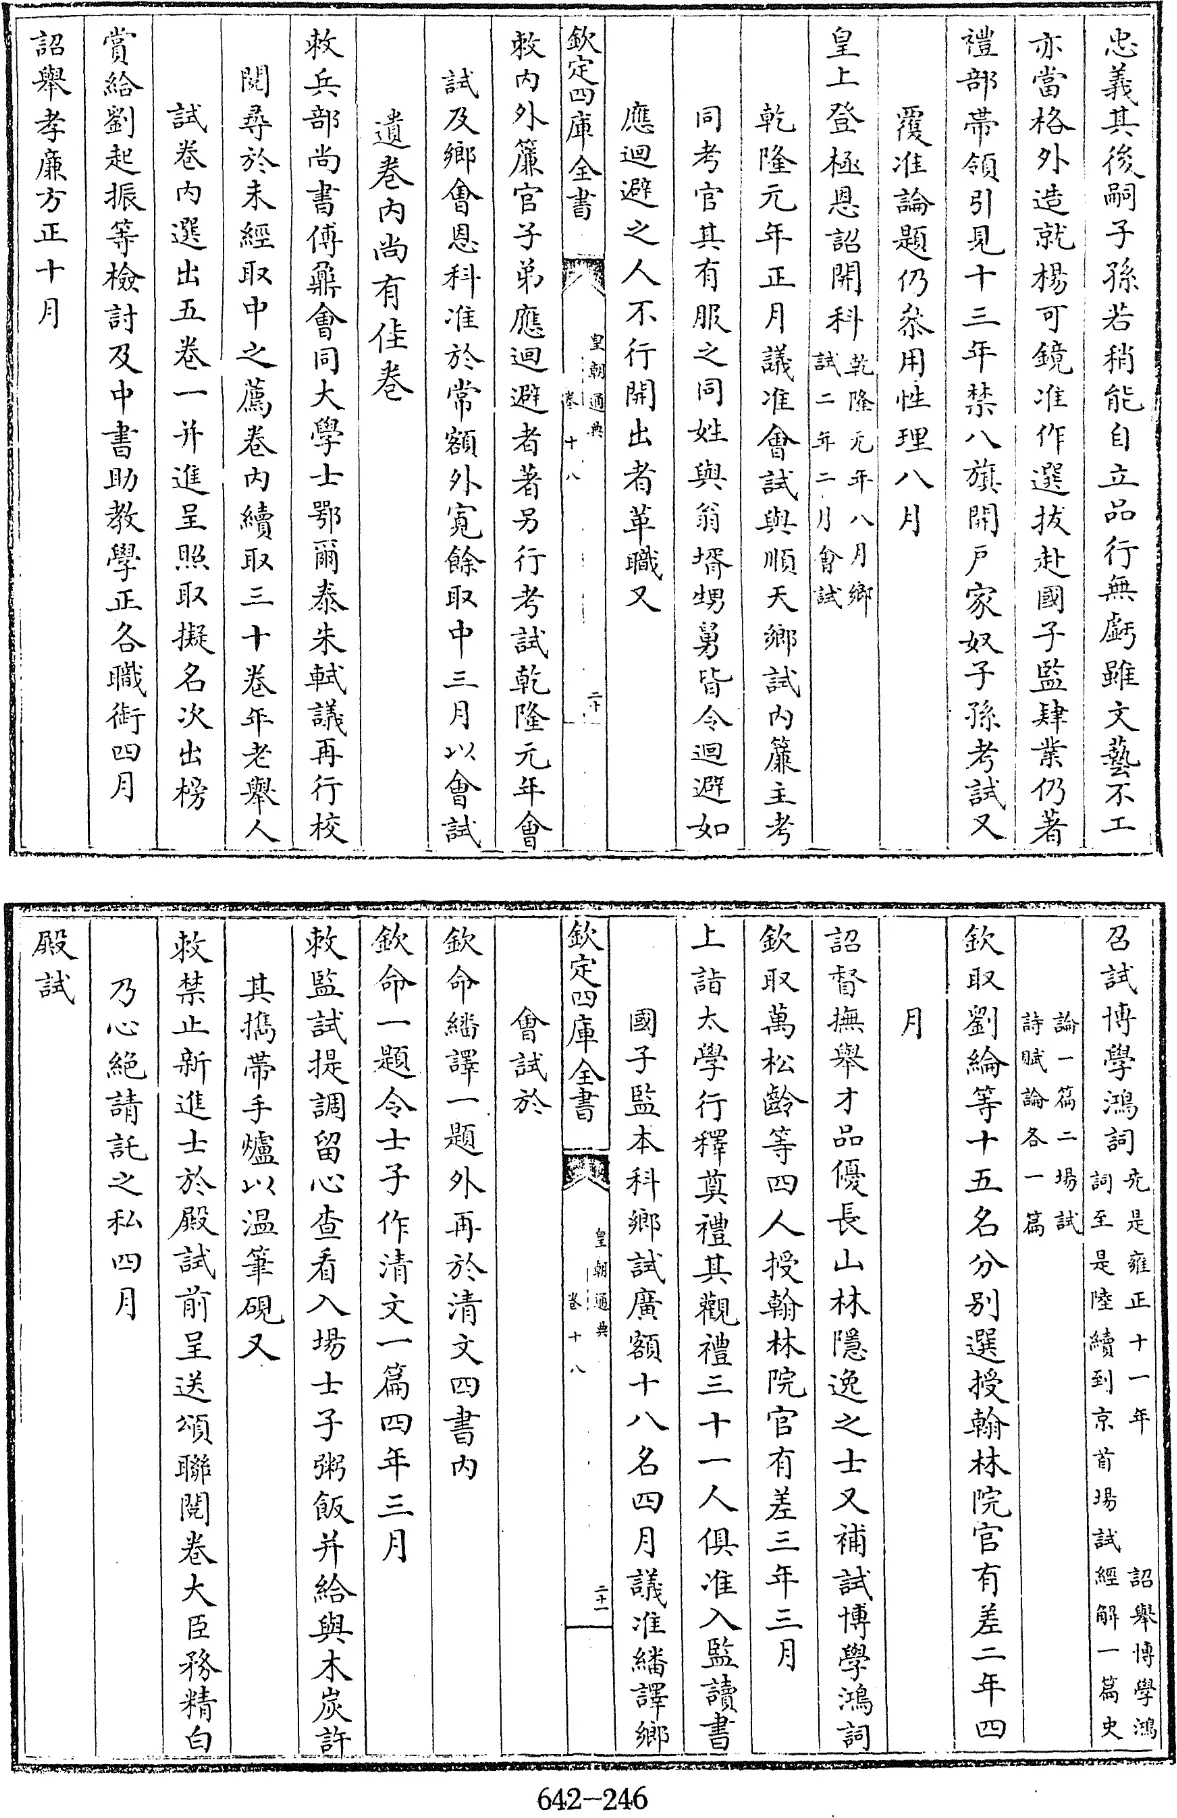 忠義其後嗣子孫若稍能自立品行無虧雖文藝不工
亦當格外造就楊可鏡准作選拔赴國子監肄業仍著
禮部帶領引見十三年禁八旗開戶家奴子孫考試又
覆准論題仍叅用性理八月
皇上登極恩詔開科乾隆元年八月鄉
試二年二月會試
乾隆元年正月議准會試與順天鄉試內簾主考
同考官其有服之同姓與翁壻甥舅皆令迴避如
應迴避之人不行開出者革職又
欽定四庫全書
皇朝通典
卷十八
二十
敕內外簾官子弟應迴避者著另行考試乾隆元年會
試及鄉會恩科准於常額外寬餘取中三月以會試
遺卷內尚有佳卷
敕兵部尚書傅鼐會同大學士鄂爾泰朱軾議再行校
閱尋於未經取中之薦卷內續取三十卷年老舉人
試卷內選出五卷一并進呈照取擬名次出榜
賞給劉起振等檢討及中書助教學正各職銜四月
詔舉孝廉方正十月
召試博學鴻詞先是雍正十一年 詔舉博學鴻
詞至是陸續到京首場試經解一篇史
論一篇二場試
詩賦論各一篇
欽取劉綸等十五名分別選授翰林院官有差二年四
月
詔督撫舉才品優長山林隱逸之士又補試博學鴻詞
欽取萬松齡等四人授翰林院官有差三年三月
上詣太學行釋奠禮其觀禮三十一人俱准入監讀書
國子監本科鄉試廣額十八名四月議准繙譯鄉
欽定四庫全書
皇朝通典
卷十八
二十一
會試於
欽命繙譯一題外再於清文四書內
欽命一題令士子作清文一篇四年三月
敕監試提調留心查看入場士子粥飯并給與木炭許
其攜帶手爐以溫筆硯又
敕禁止新進士於殿試前呈送頌聯閱卷大臣務精白
乃心絕請託之私四月
殿試
642-246